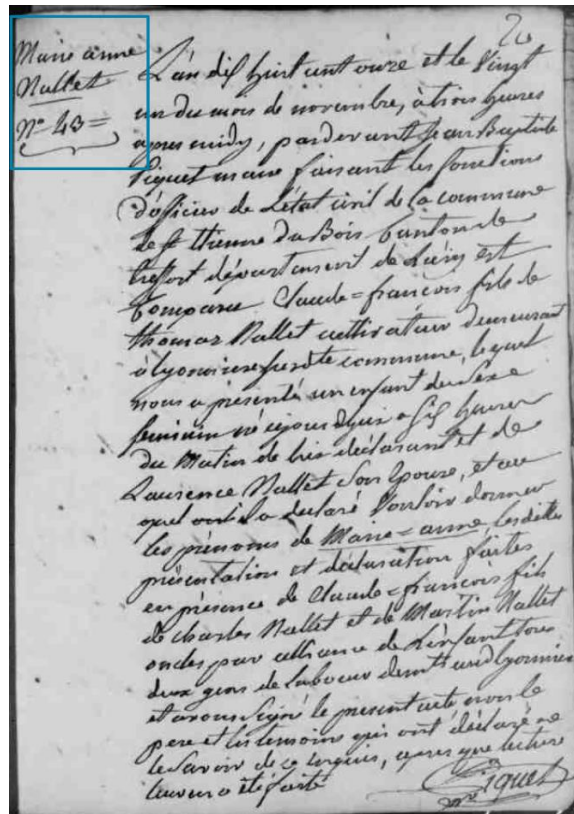 20
Marie anne
Nallet
N° 43 =
L'an dix huit cent onze et le vingt
un du mois de novembre, à trois heures
apres midy, pardevant Jean Baptiste
Piquet maire faisant les fonctions
d'officier de l'état civil de la commune
de St Etienne du Bois Canton de
treffort département de L'ain est
Comparu Claude = françois fils de
thomas Nallet cultivateur demeurant
à lyonnieres susdte commune, lequel
nous a présenté un enfant du Sexe
feminin né cejourdhui a six heures
du Matin de luis déclarant et de
Laurence Nallet Son Epouse, et au
quel ont il a déclaré vouloir donner
les prénoms de Marie = anne, lesdittes
présentation et déclaration faites
en présence de Claude = françois fils
de charles Nallet et de Martin Nallet
oncles par alliance de L'enfant tous
deux gens de labour demts aud lyonnieres
et avons Signé le present acte non le
pere et les temoins qui ont déclaré ne
le Savoir de ce requis, apres que lecture
leur en a été faite
Piquet